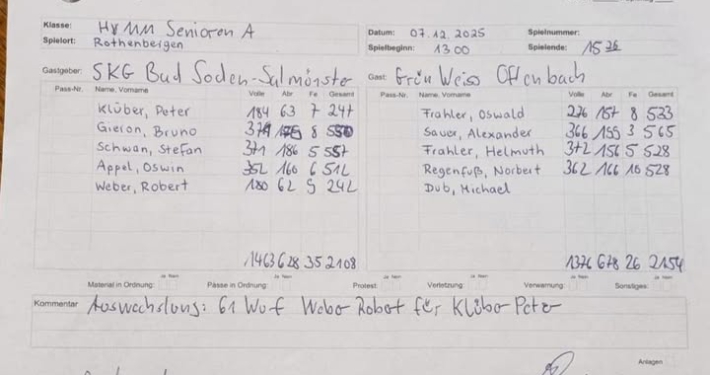 Klasse: HVMM Senioren A
Spielort: Rothenbergen
Datum: 07.12.2025 Spielnummer:
Spielbeginn: 13.00 Spielende: 15 36
Gastgeber: SKG Bad Soden-Salmünster
Gast: Grün Weiss Offenbach
Pass-Nr. Name, Vorname Volle Abr Fe Gesamt
Klüber, Peter 184 63 7 247
Gieron, Bruno 8 550
Schwan, Stefan 371 186 5 557
Appel, Oswin 352 160 6 512
Weber, Robert 180 62 9 242
1463 628 35 2108
Pass-Nr. Name, Vorname Volle Abr Fe Gesamt
Frahler, Oswald 157 8 533
Sauer, Alexander 366 199 3 565
Frahler, Helmuth 372 156 5 528
Regenfuß, Norbert 362 166 10 528
Dub, Michael
1376 678 26 2154
Ja Nein Ja Nein Ja Nein Ja Nein Ja Nein Ja Nein
Material in Ordnung: Pässe in Ordnung: Protest: Verletzung: Verwarnung: Sonstiges:
Kommentar Auswechslung: 61 Wurf Weber Robert für Klüber Peter
Anlagen